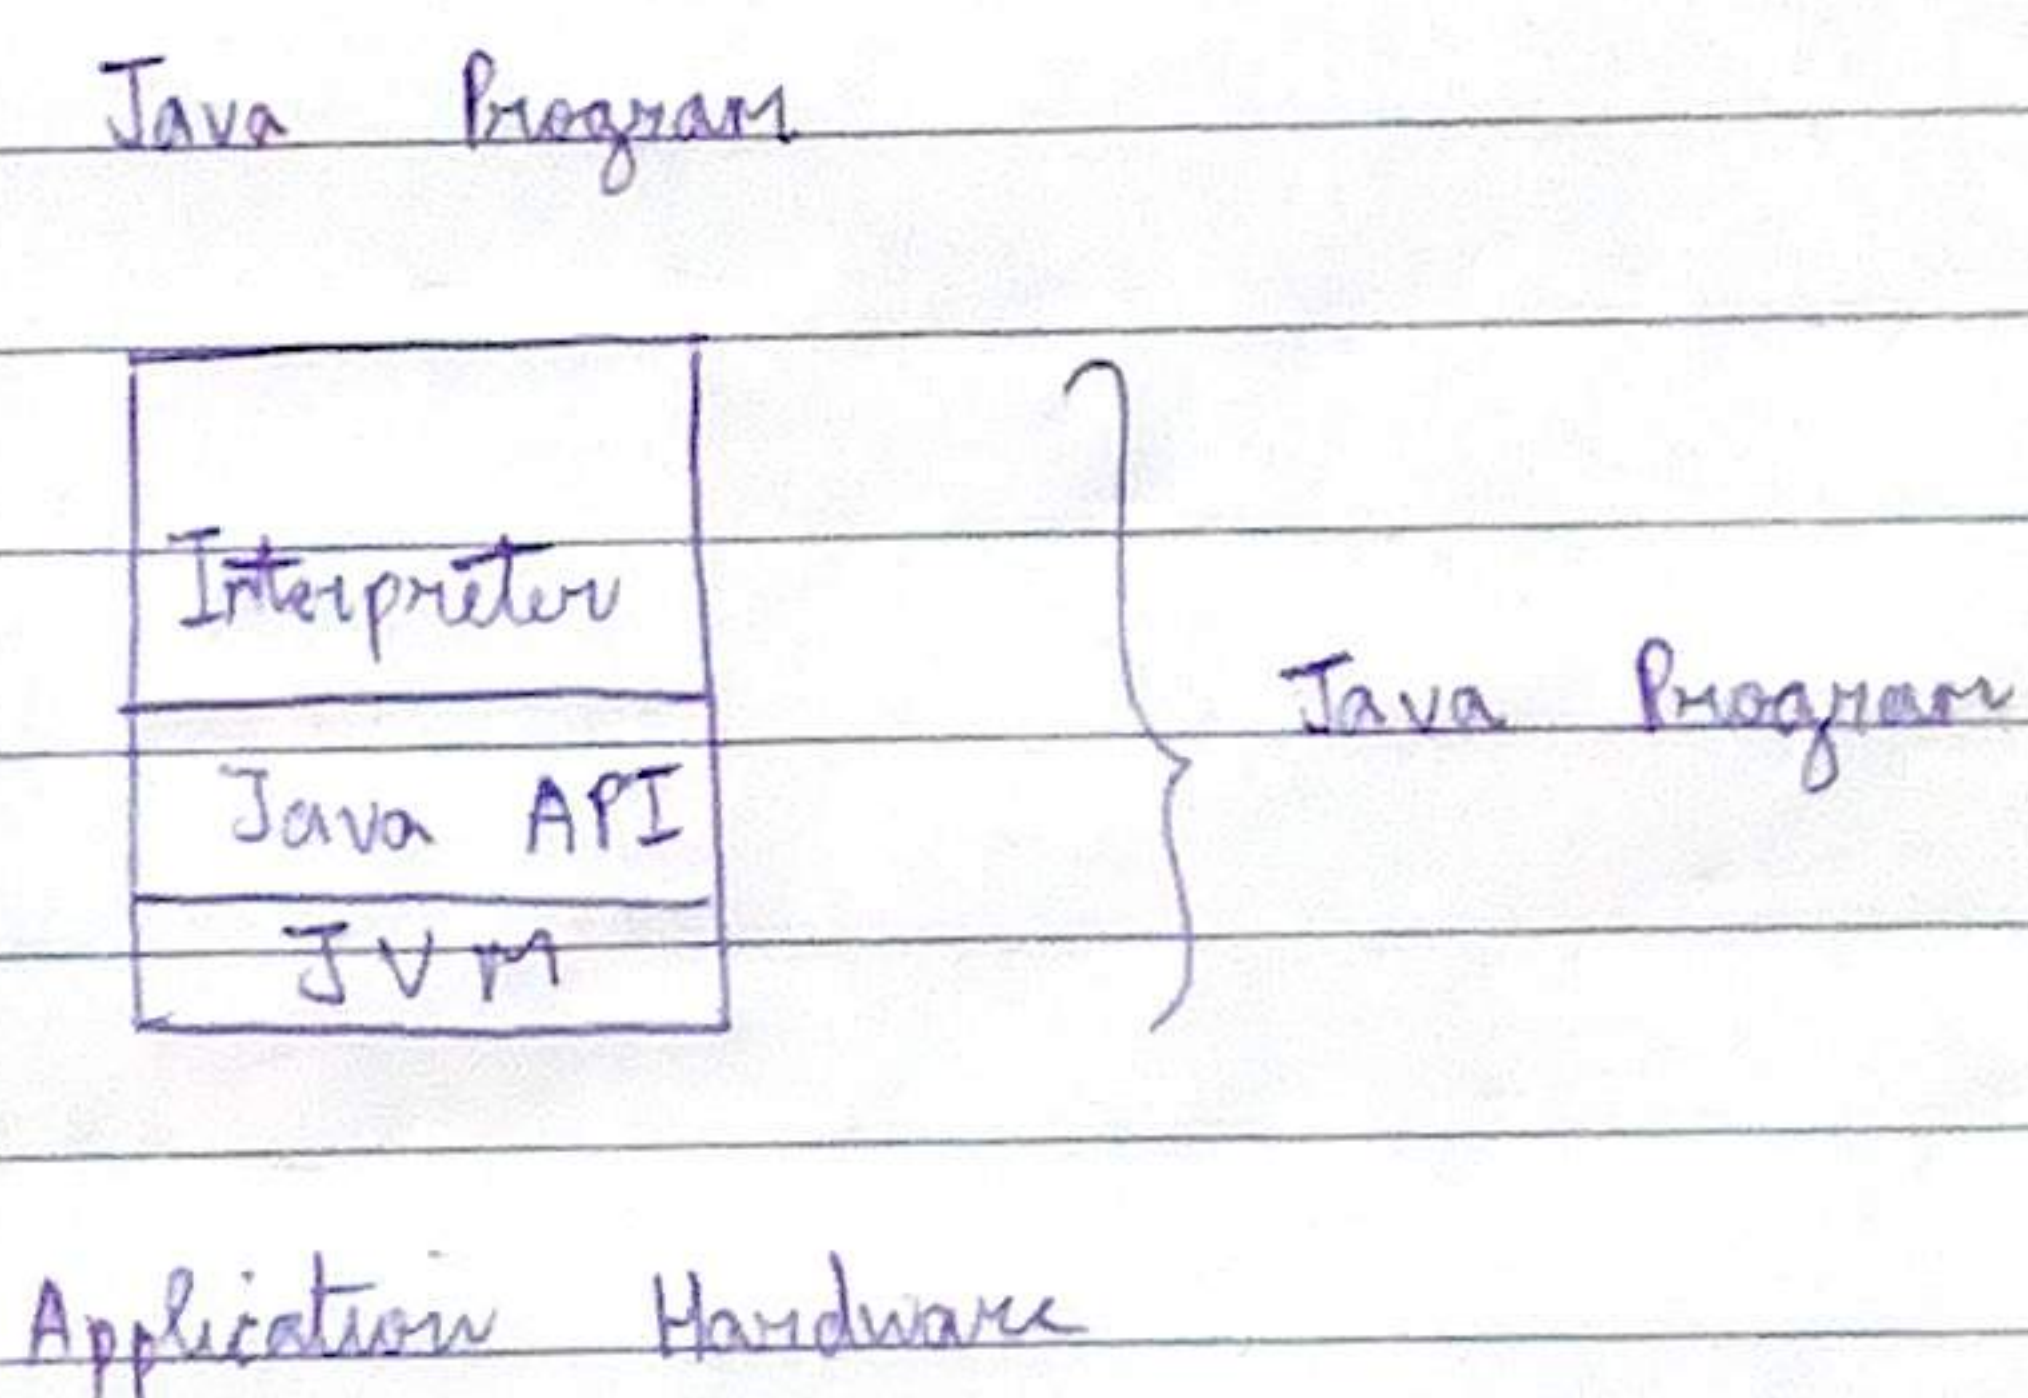 Java Program
Interpreter
Java API
JVM
Java Program
Application Hardware